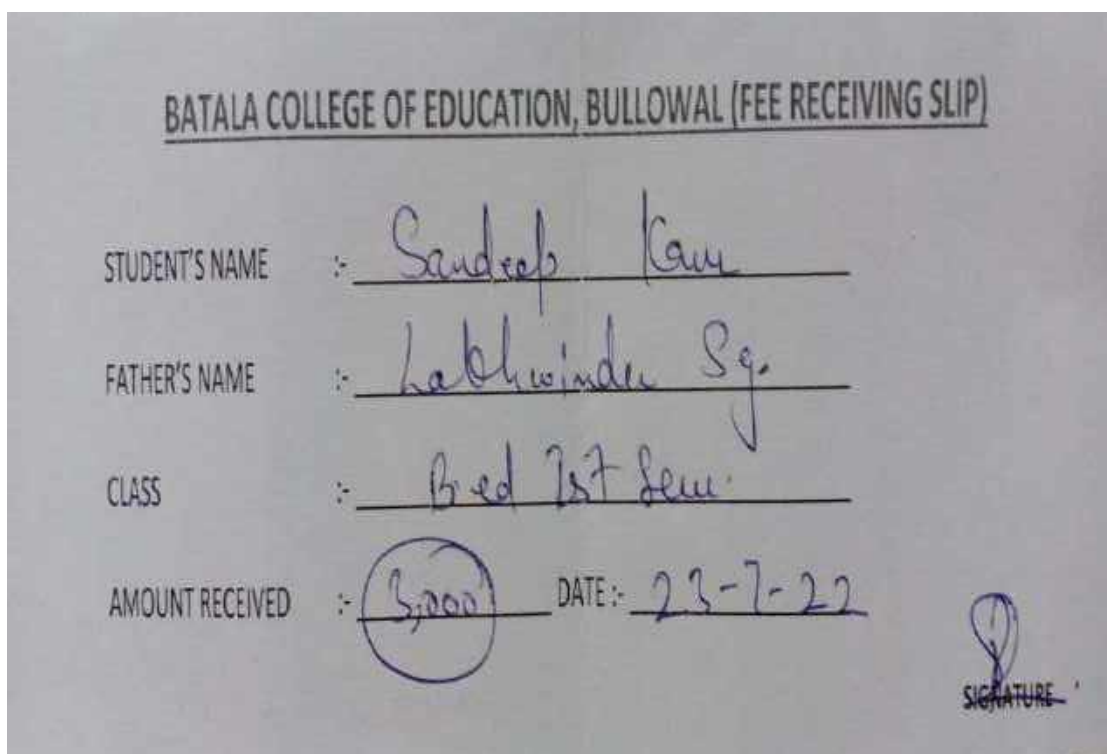 BATALA COLLEGE OF EDUCATION, BULLOWAL (FEE RECEIVING SLIP)
STUDENT'S NAME :- Sandeep Kaur
FATHER'S NAME :- Lakhwinder Sg.
CLASS :- B.ed 1st Sem.
AMOUNT RECEIVED :- 3,000 DATE :- 23-7-22
SIGNATURE